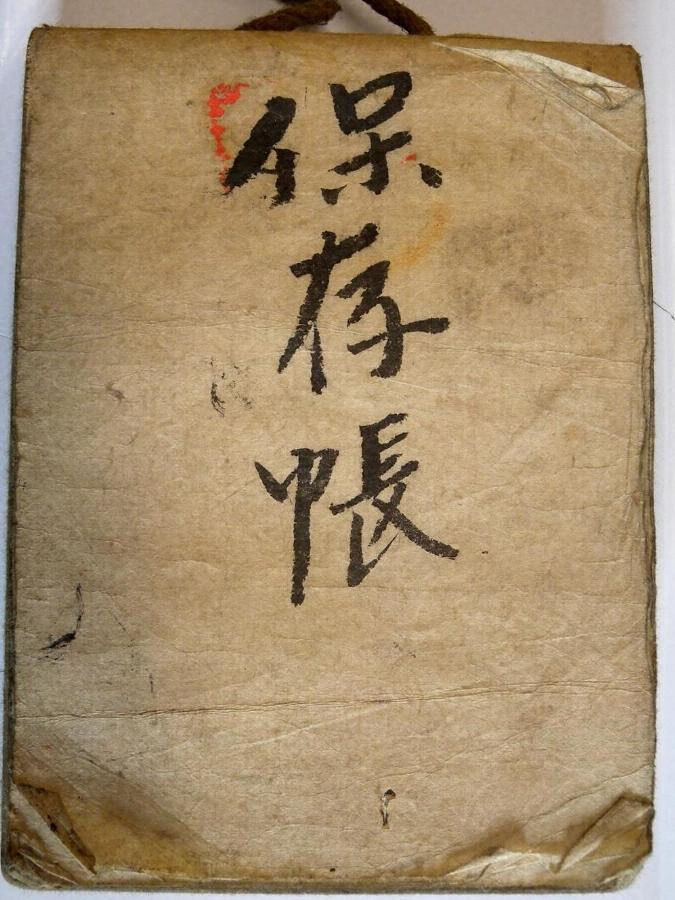 保存帳